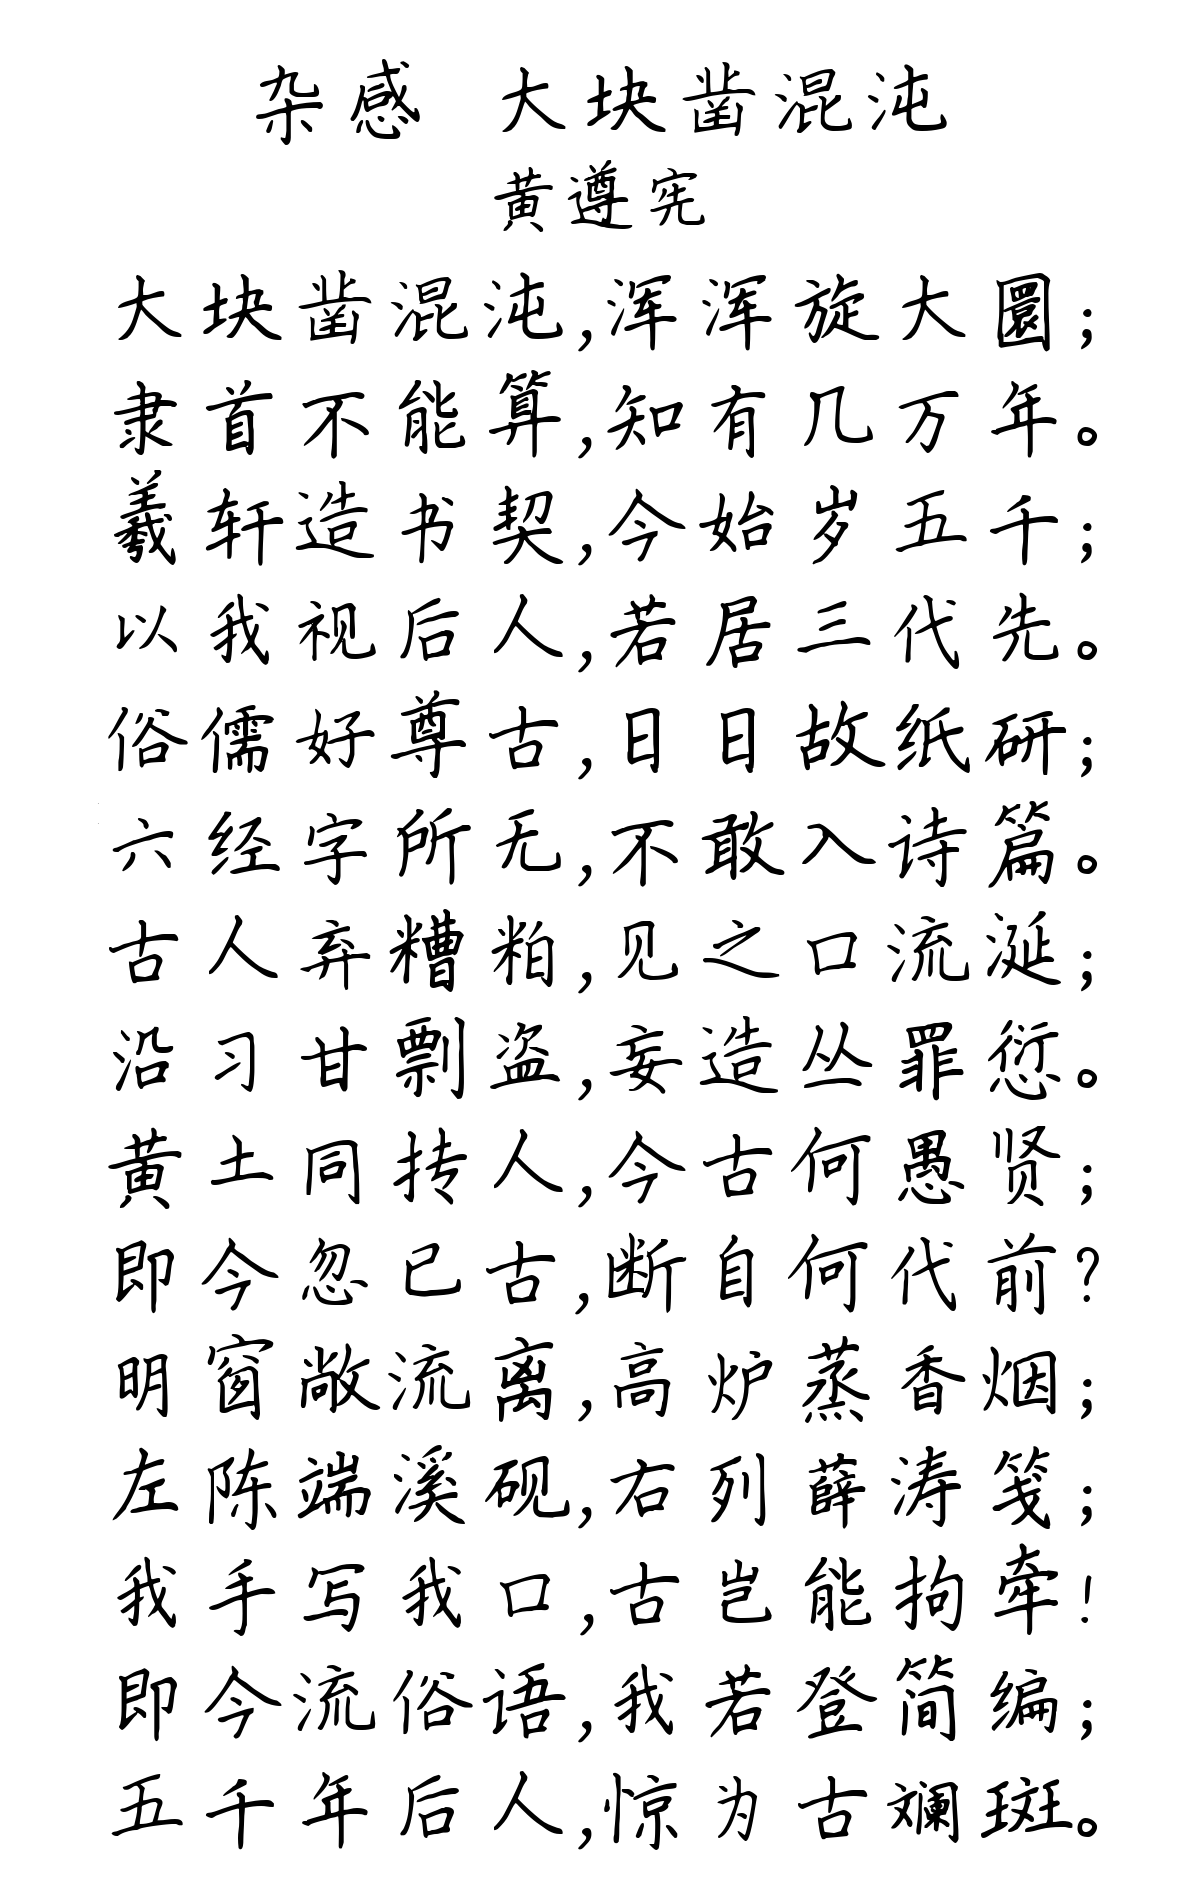 杂感 大块凿混沌
黄遵宪
大块凿混沌,浑浑旋大圜;
隶首不能算,知有几万年。
羲轩造书契,今始岁五千;
以我视后人,若居三代先。
俗儒好尊古,日日故纸研;
六经字所无,不敢入诗篇。
古人弃糟粕,见之口流涎;
沿习甘剽盗,妄造丛罪愆。
黄土同抟人,今古何愚贤;
即今忽已古,断自何代前?
明窗敞流离,高炉蒸香烟;
左陈端溪砚,右列薛涛笺;
我手写我口,古岂能拘牵!
即今流俗语,我若登简编;
五千年后人,惊为古斓斑。